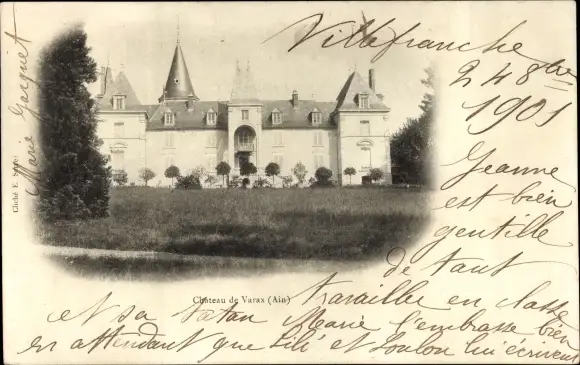 Villefranche
24 8bre
1901
Jeanne
est bien
gentille
de tant
travailler en classe
et sa tatan Marie l'embrasse bien
en attendant que Lili et Loulou lui écrivent
Marie
Château de Varax (Ain)
Cliché E.